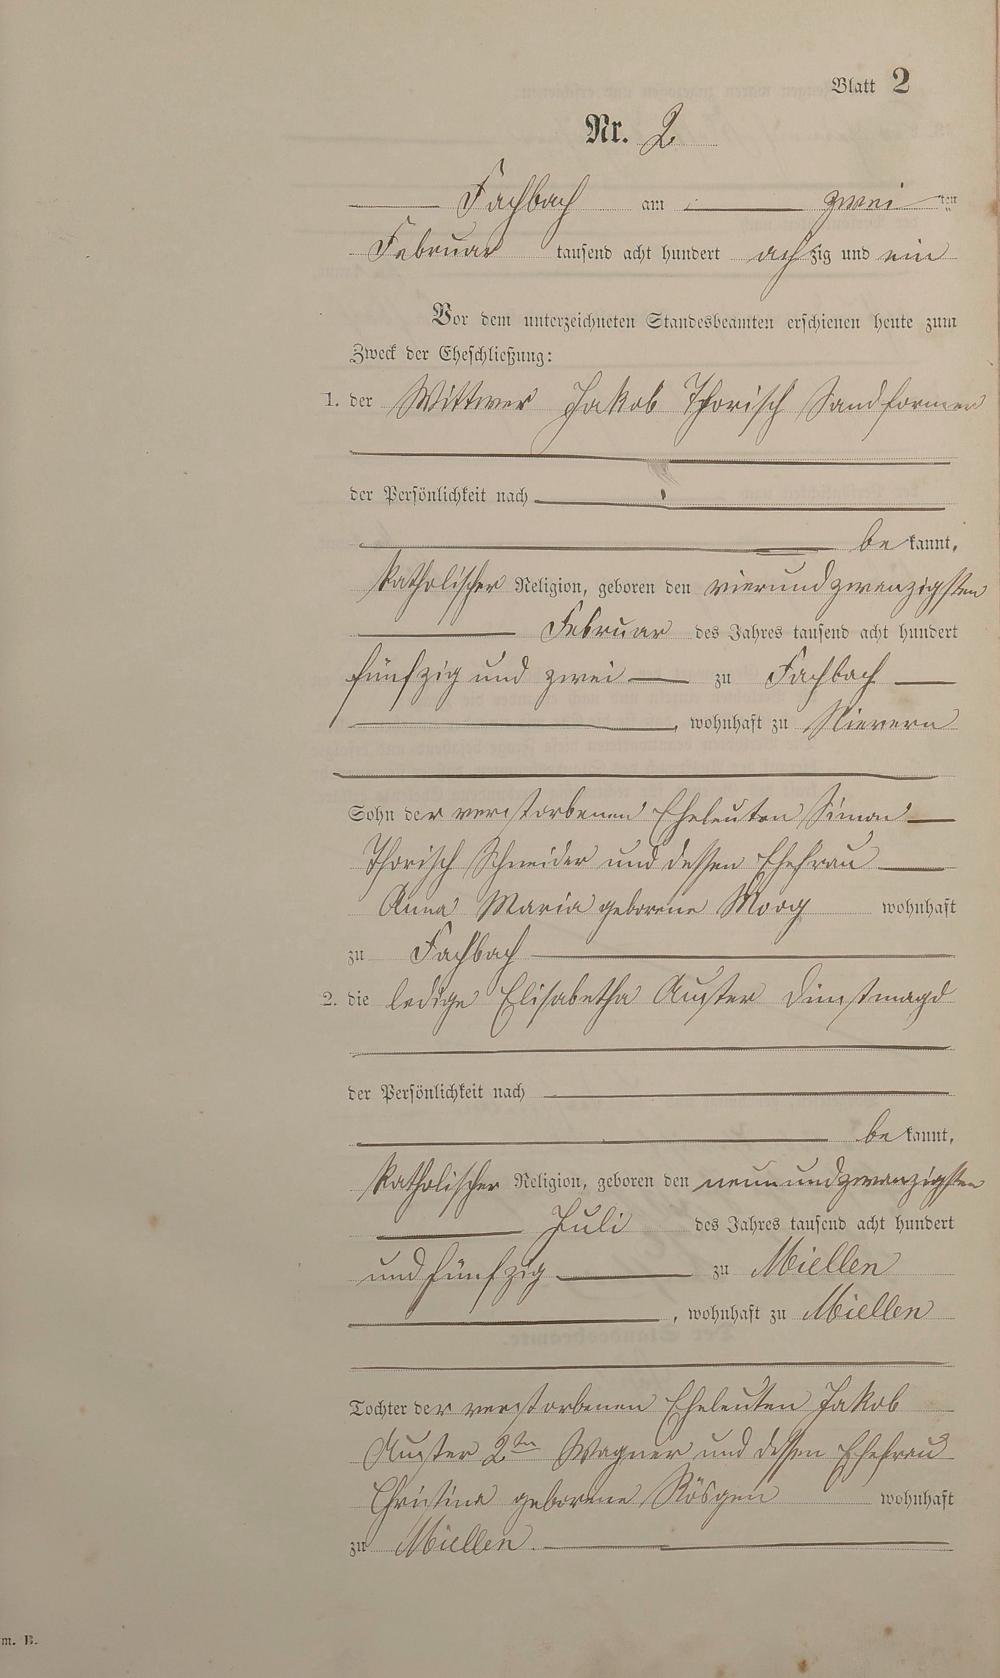 Blatt 2
Nr. 2
Fachbach am zwei ten
Februar tausend acht hundert achzig und ein
Vor dem unterzeichneten Standesbeamten erschienen heute zum
Zweck der Eheschließung:
1. der Wittwer Jakob Thorisch Sandformer
der Persönlichkeit nach
be kannt,
katholischer Religion, geboren den vierundzwanzigsten
Februar des Jahres tausend acht hundert
fünfzig und zwei zu Fachbach
, wohnhaft zu Nievern
Sohn der verstorbenen Eheleuten Simon
Thorisch Schneider und dessen Ehefrau
Anna Maria geborene Moog wohnhaft
zu Fachbach
2. die ledige Elisabetha Auster Dinstmagd
der Persönlichkeit nach
be kannt,
katholischer Religion, geboren den neunundzwanzigsten
Juli des Jahres tausend acht hundert
und fünfzig zu Miellen
, wohnhaft zu Miellen
Tochter der verstorbenen Eheleuten Jakob
Auster 2ten Wagner und dessen Ehefrau
Christina geborene Rösgen wohnhaft
zu Miellen.
m. B.